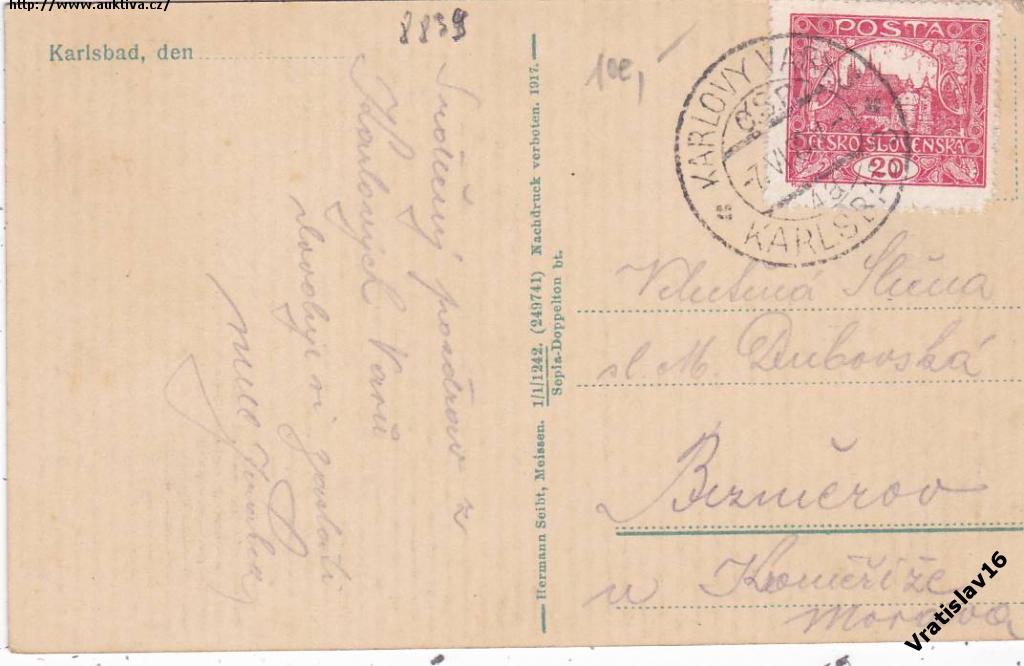 http://www.auktiva.cz/
8839
Karlsbad, den
100,-
Srdečný pozdrav z
Karlových Varů
dovoluje si zaslati
Hermann Seibt, Meissen. 1/1/1242. (249741) Nachdruck verboten. 1917.
Sepia-Doppelton bt.
POSTA
ČESKO-SLOVENSKÁ
20
KARLOVY VARY
ČSP
KARLSBAD
Slečna
sl. M. Dubovská
Bezměrov
u Kroměříže
Morava
Vratislav16